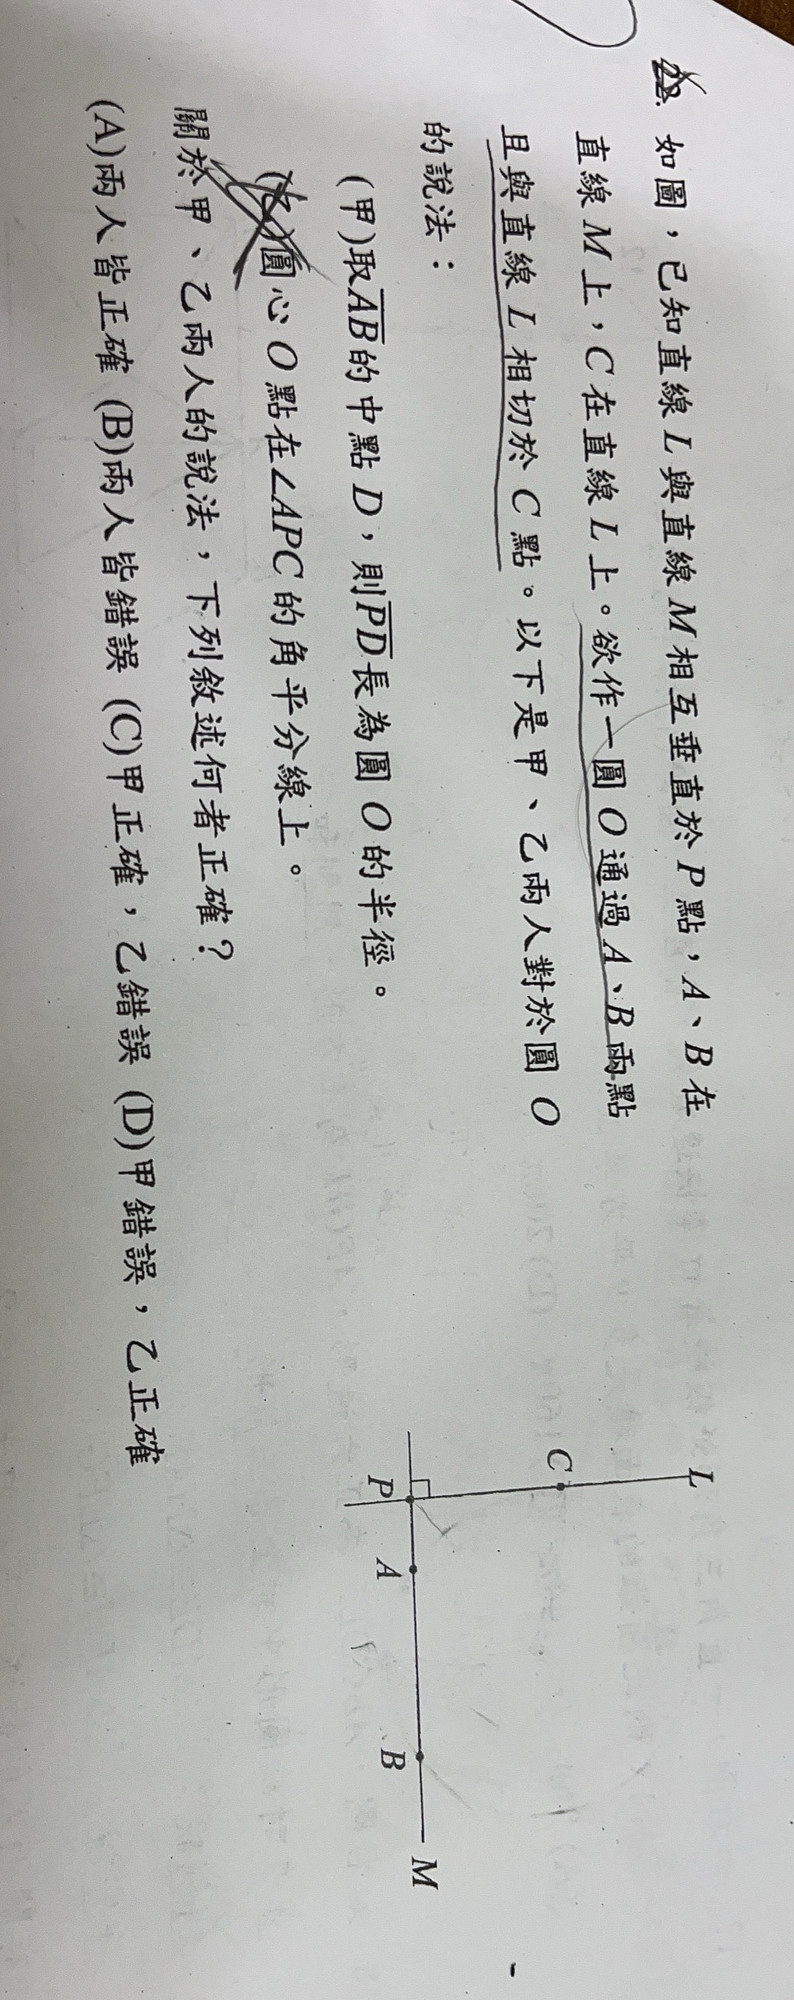 28. 如圖，已知直線 L 與直線 M 相互垂直於 P 點，A、B 在
直線 M 上，C 在直線 L 上。欲作一圓 O 通過 A、B 兩點
且與直線 L 相切於 C 點。以下是甲、乙兩人對於圓 O
的說法：
(甲)取AB的中點 D，則PD長為圓 O 的半徑。
(乙)圓心 O 點在∠APC 的角平分線上。
關於甲、乙兩人的說法，下列敘述何者正確？
(A)兩人皆正確 (B)兩人皆錯誤 (C)甲正確，乙錯誤 (D)甲錯誤，乙正確
L
C
P A B M